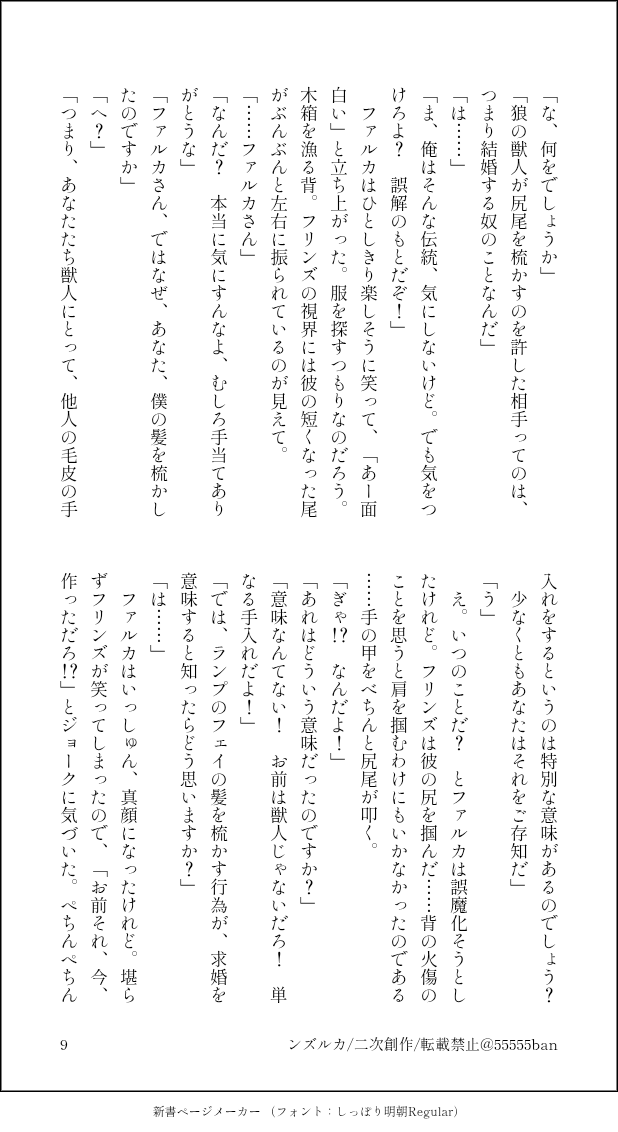 「な、何をでしょうか」
「狼の獣人が尻尾を梳かすのを許した相手ってのは、
つまり結婚する奴のことなんだ」
「は……」
「ま、俺はそんな伝統、気にしないけど。でも気をつ
けろよ？　誤解のもとだぞ！」
　ファルカはひとしきり楽しそうに笑って、「あー面
白い」と立ち上がった。服を探すつもりなのだろう。
木箱を漁る背。フリンズの視界には彼の短くなった尾
がぶんぶんと左右に振られているのが見えて。
「……ファルカさん」
「なんだ？　本当に気にすんなよ、むしろ手当てあり
がとうな」
「ファルカさん、ではなぜ、あなた、僕の髪を梳かし
たのですか」
「へ？」
「つまり、あなたたち獣人にとって、他人の毛皮の手
入れをするというのは特別な意味があるのでしょう？
　少なくともあなたはそれをご存知だ」
「う」
　え。いつのことだ？　とファルカは誤魔化そうとし
たけれど。フリンズは彼の尻を掴んだ……背の火傷の
ことを思うと肩を掴むわけにもいかなかったのである
……手の甲をべちんと尻尾が叩く。
「ぎゃ!?　なんだよ！」
「あれはどういう意味だったのですか？」
「意味なんてない！　お前は獣人じゃないだろ！　単
なる手入れだよ！」
「では、ランプのフェイの髪を梳かす行為が、求婚を
意味すると知ったらどう思いますか？」
「は……」
　ファルカはいっしゅん、真顔になったけれど。堪ら
ずフリンズが笑ってしまったので、「お前それ、今、
作っただろ!?」とジョークに気づいた。ぺちんぺちん
9
ンズルカ/二次創作/転載禁止@55555ban
新書ページメーカー （フォント：しっぽり明朝Regular）